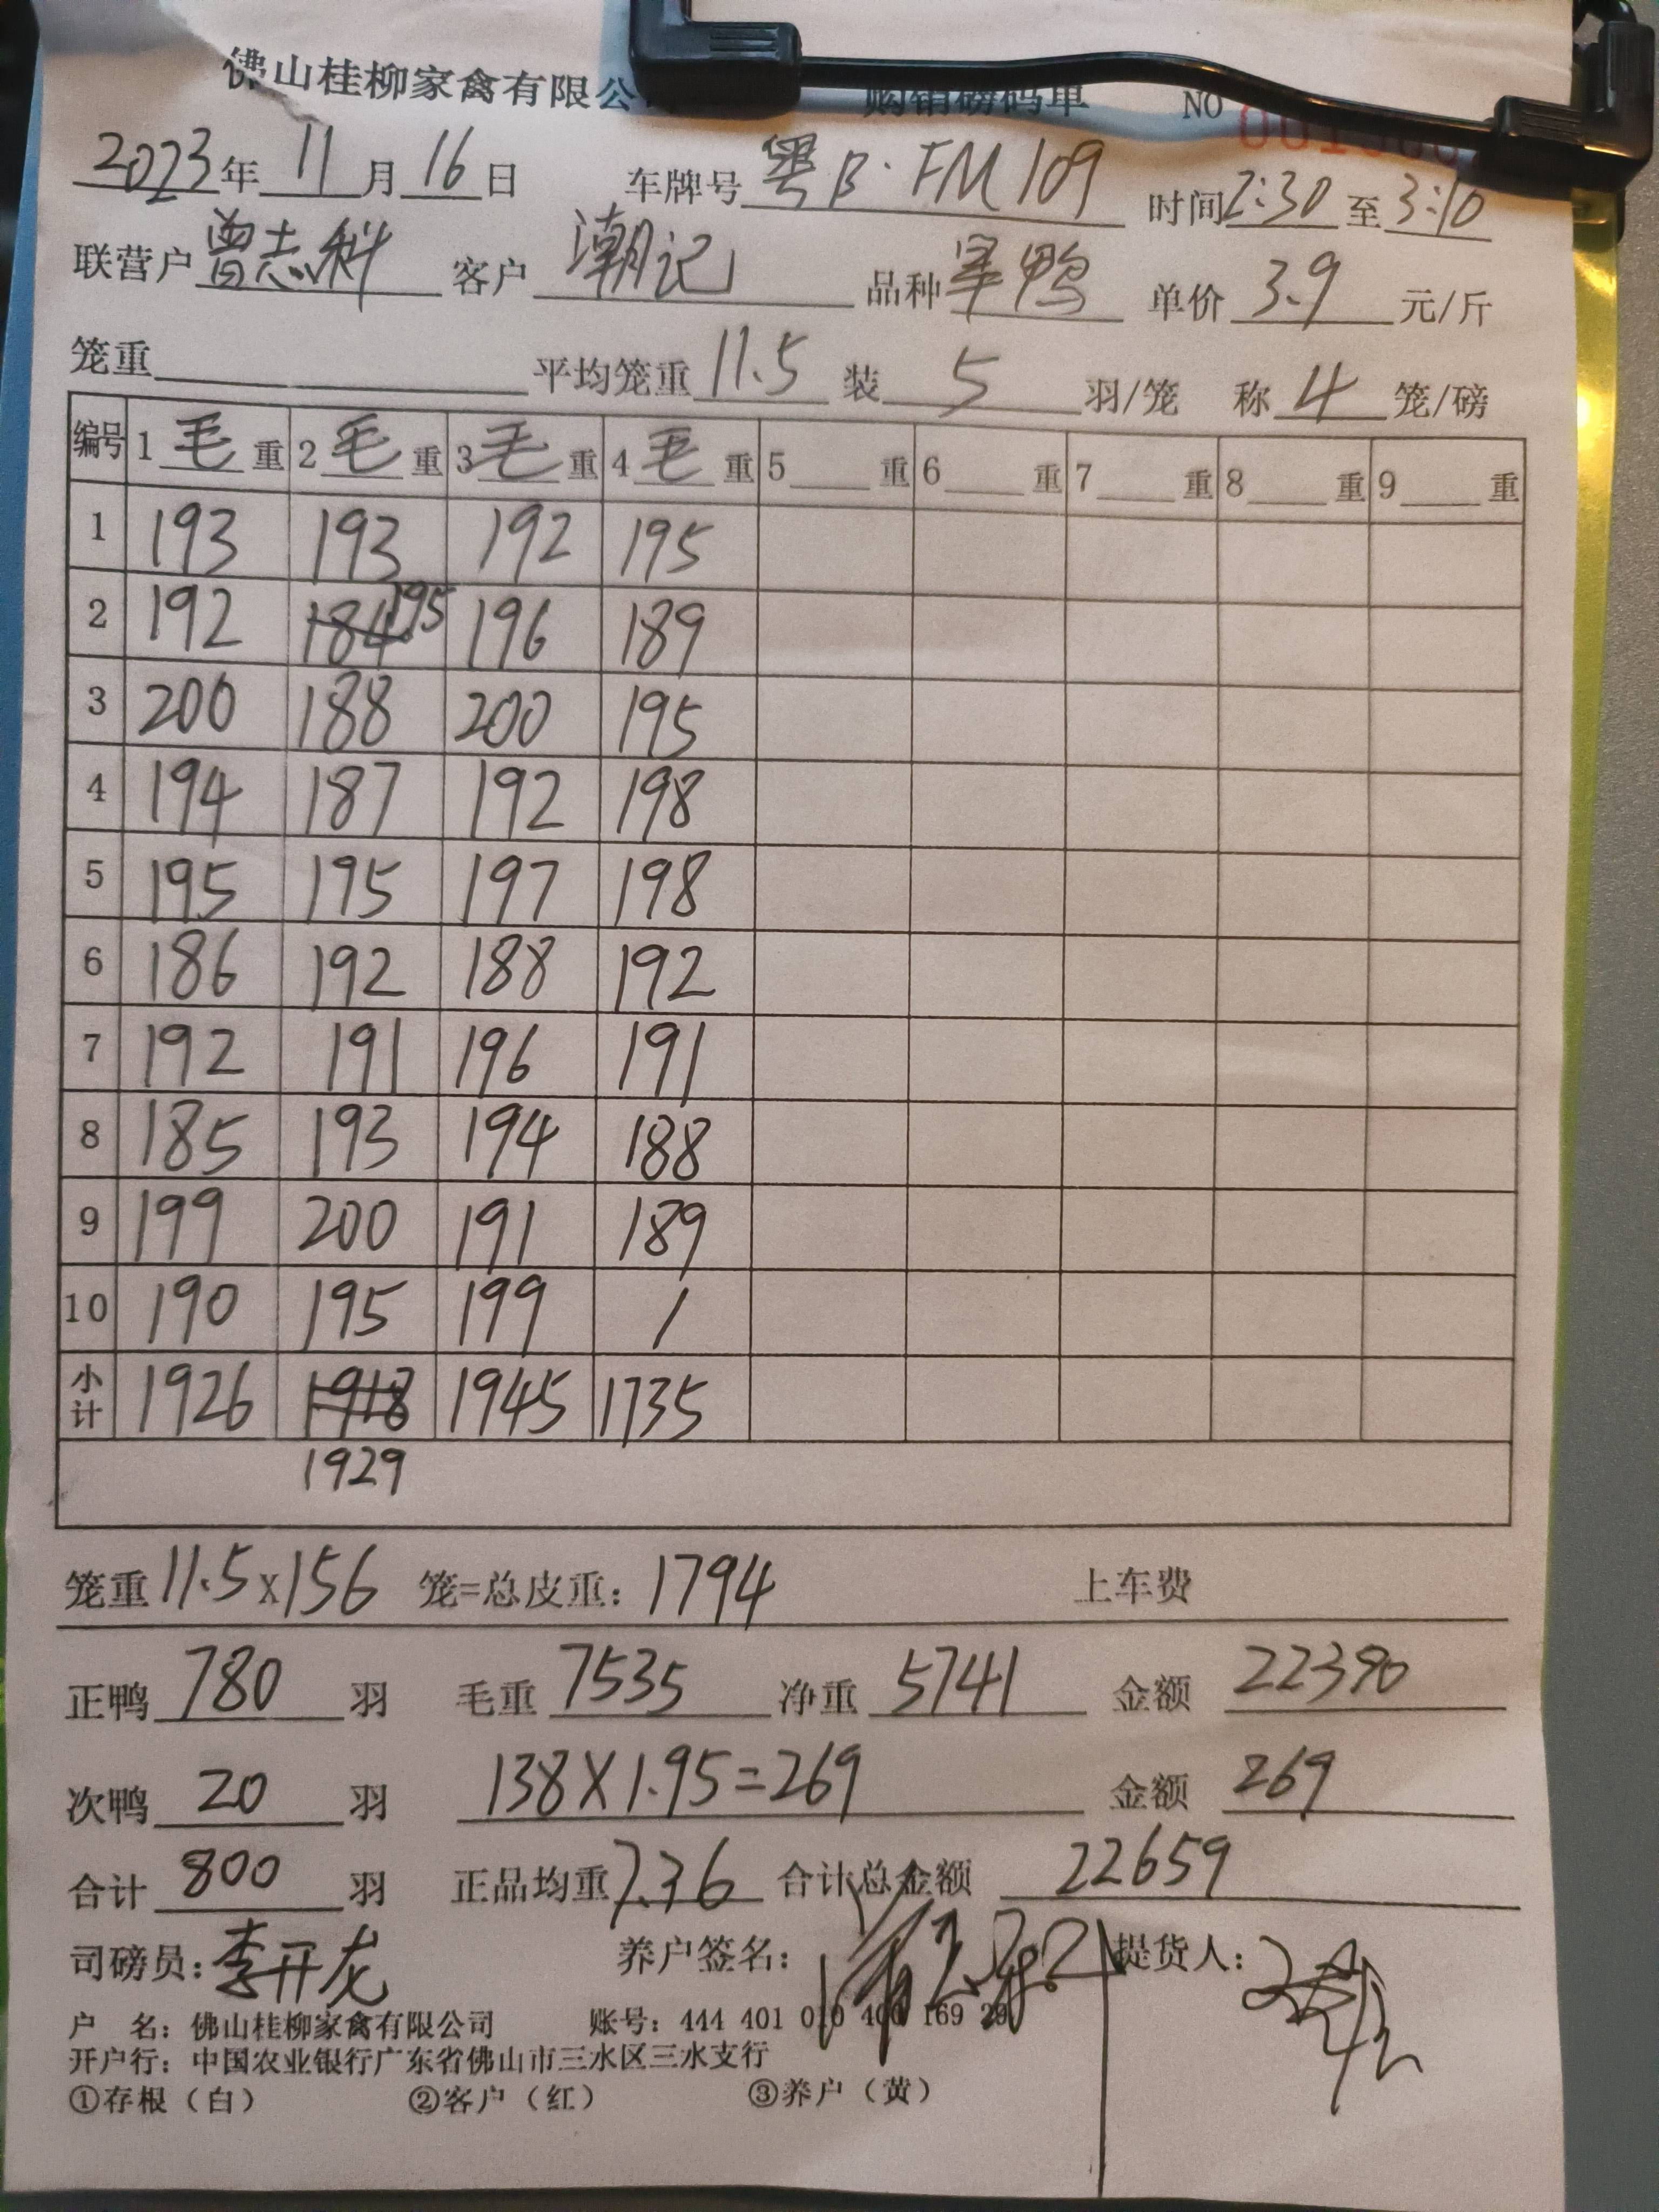 佛山桂柳家禽有限公 购销磅码单 NO
2023年 11月 16日 车牌号 粤B·FM109 时间 2:30 至 3:10
联营户 曾志科 客户 潮记 品种 单鸭 单价 3.9 元/斤
笼重 平均笼重 11.5 装 5 羽/笼 称 4 笼/磅
编号 1 毛 重 2 毛 重 3 毛 重 4 毛 重 5 重 6 重 7 重 8 重 9 重
1 193 193 192 195
2 192 184 195 196 189
3 200 188 200 195
4 194 187 192 198
5 195 195 197 198
6 186 192 188 192
7 192 191 196 191
8 185 193 194 188
9 199 200 191 189
10 190 195 199 /
小计 1926 1918 1945 1735
1929
笼重 11.5 X 156 笼=总皮重: 1794 上车费
正鸭 780 羽 毛重 7535 净重 5741 金额 22390
次鸭 20 羽 138X1.95=269 金额 269
合计 800 羽 正品均重 7.36 合计总金额 22659
司磅员: 李开龙 养户签名: 提货人:
户 名: 佛山桂柳家禽有限公司 账号: 444 401 010 400 169 29
开户行: 中国农业银行广东省佛山市三水区三水支行
①存根（白） ②客户（红） ③养户（黄）